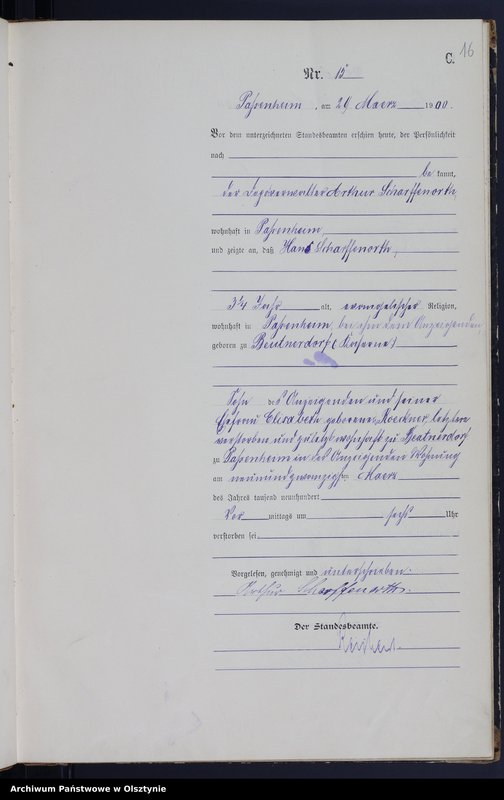 C. 16
Nr. 15
Passenheim, am 29 Maerz 1900.
Vor dem unterzeichneten Standesbeamten erschien heute, der Persönlichkeit
nach
be kannt,
der Arthur Scharffenorth,
wohnhaft in Passenheim,
und zeigte an, daß Hans Scharffenorth,
3 1/4 Jahr alt, evangelischer Religion,
wohnhaft in Passenheim, bei ihm dem Anzeigenden,
geboren zu Beutnerdorf (Kaserne)
Sohn des Anzeigenden und seiner
Ehefrau Elisabeth geborene Roeckner, letztere
verstorben und zuletzt wohnhaft zu Beutnerdorf
zu Passenheim in des Anzeigenden Wohnung
am neunundzwanzigsten Maerz
des Jahres tausend neunhundert
Vor mittags um sechs Uhr
verstorben sei
Vorgelesen, genehmigt und unterschrieben:
Arthur Scharffenorth.
Der Standesbeamte.
Archiwum Państwowe w Olsztynie